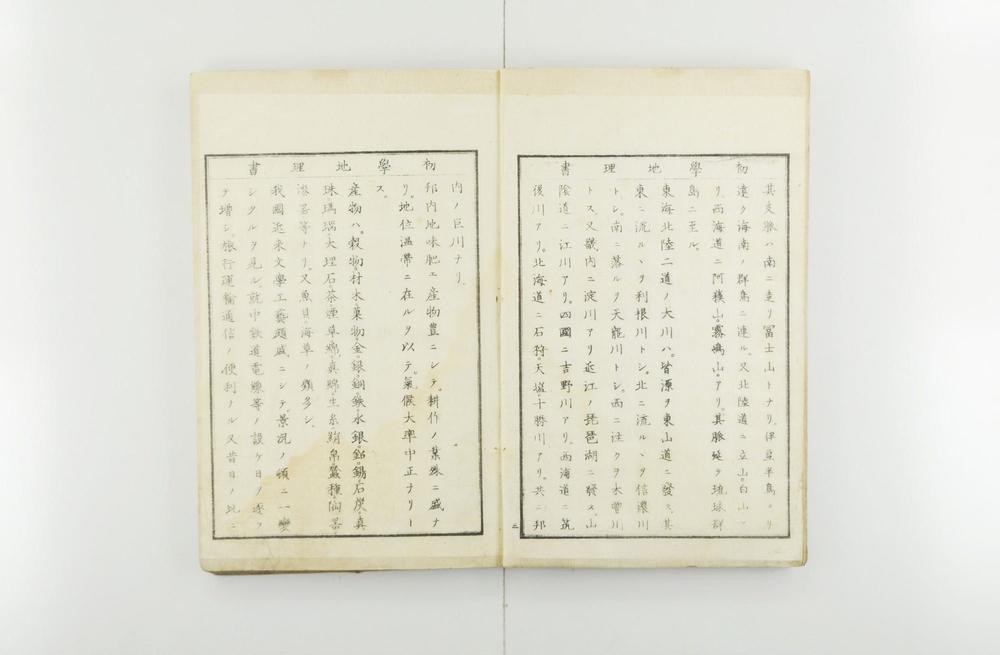 初學地理書
其支脉ハ南ニ走リ冨士山トナリ。伊豆半島ヨリ
遠ク海南ノ群島ニ連ル。又北陸道ニ立山。白山ア
リ。西海道ニ阿蘓山。霧嶋山。アリ。其脉延テ琉球群
島ニ至ル。
東海北陸二道ノ大川ハ。皆源ヲ東山道ニ發ス。其
東ニ流ルヽヲ利根川トシ。北ニ流ルヽヲ信濃川
トシ。南ニ落ルヲ天龍川トシ。西ニ注クヲ木曽川
トス。又畿内ニ淀川アリ近江ノ琵琶湖ニ發ス。山
陰道ニ江川アリ。四國ニ吉野川アリ。西海道ニ筑
後川アリ。北海道ニ石狩。天塩。十勝川アリ。共ニ邦
二
初學地理書
内ノ巨川ナリ。
邦内地味肥エ産物豊ニシテ。耕作ノ業殊ニ盛ナ
リ。地位温帶ニ在ルヲ以テ。氣候大率中正ナリー
ス。
産物ハ。穀物。材木。菓物。金。銀。銅。鉄。水銀。鉛。錫。石炭。真
珠。瑪瑙。大理石。茶。煙草。綿。真綿。生糸。絹帛。蚕種。陶器。
漆器等ナリ。又魚貝。海草ノ類多シ。
我國近来文學工藝趨盛ニシテ。景况ノ頓ニ一變
シタルヲ見ル。就中鉄道電線等ノ設ケ日ヲ逐フ
テ増シ。旅行運輸通信ノ便利ナル又昔日ノ比ニ